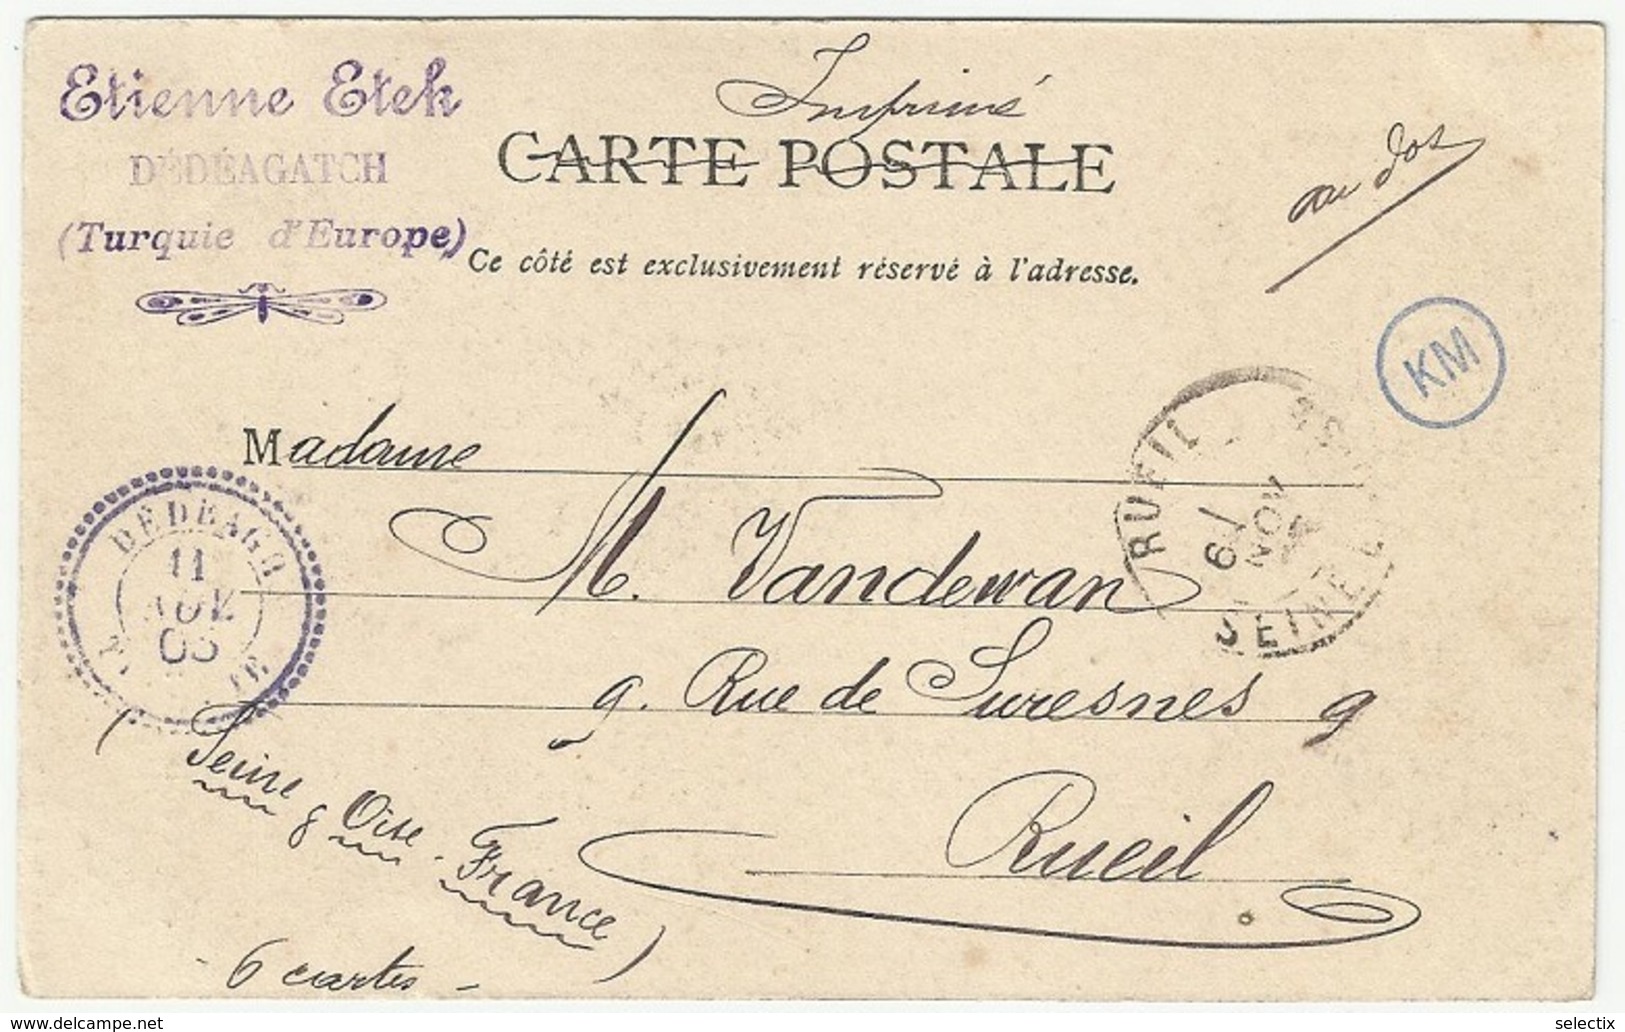 Etienne Eteh
DÉDÉAGATCH
(Turquie d'Europe)
Imprimé
CARTE POSTALE
Ce côté est exclusivement réservé à l'adresse.
au dos
KM
RUEIL
SEINE
DÉDÉAGH
11
NOV
03
Madame
M. Vandewan
9. Rue de Suresnes 9
Rueil
(Seine & Oise - France)
- 6 cartes -
delcampe.net
selectix